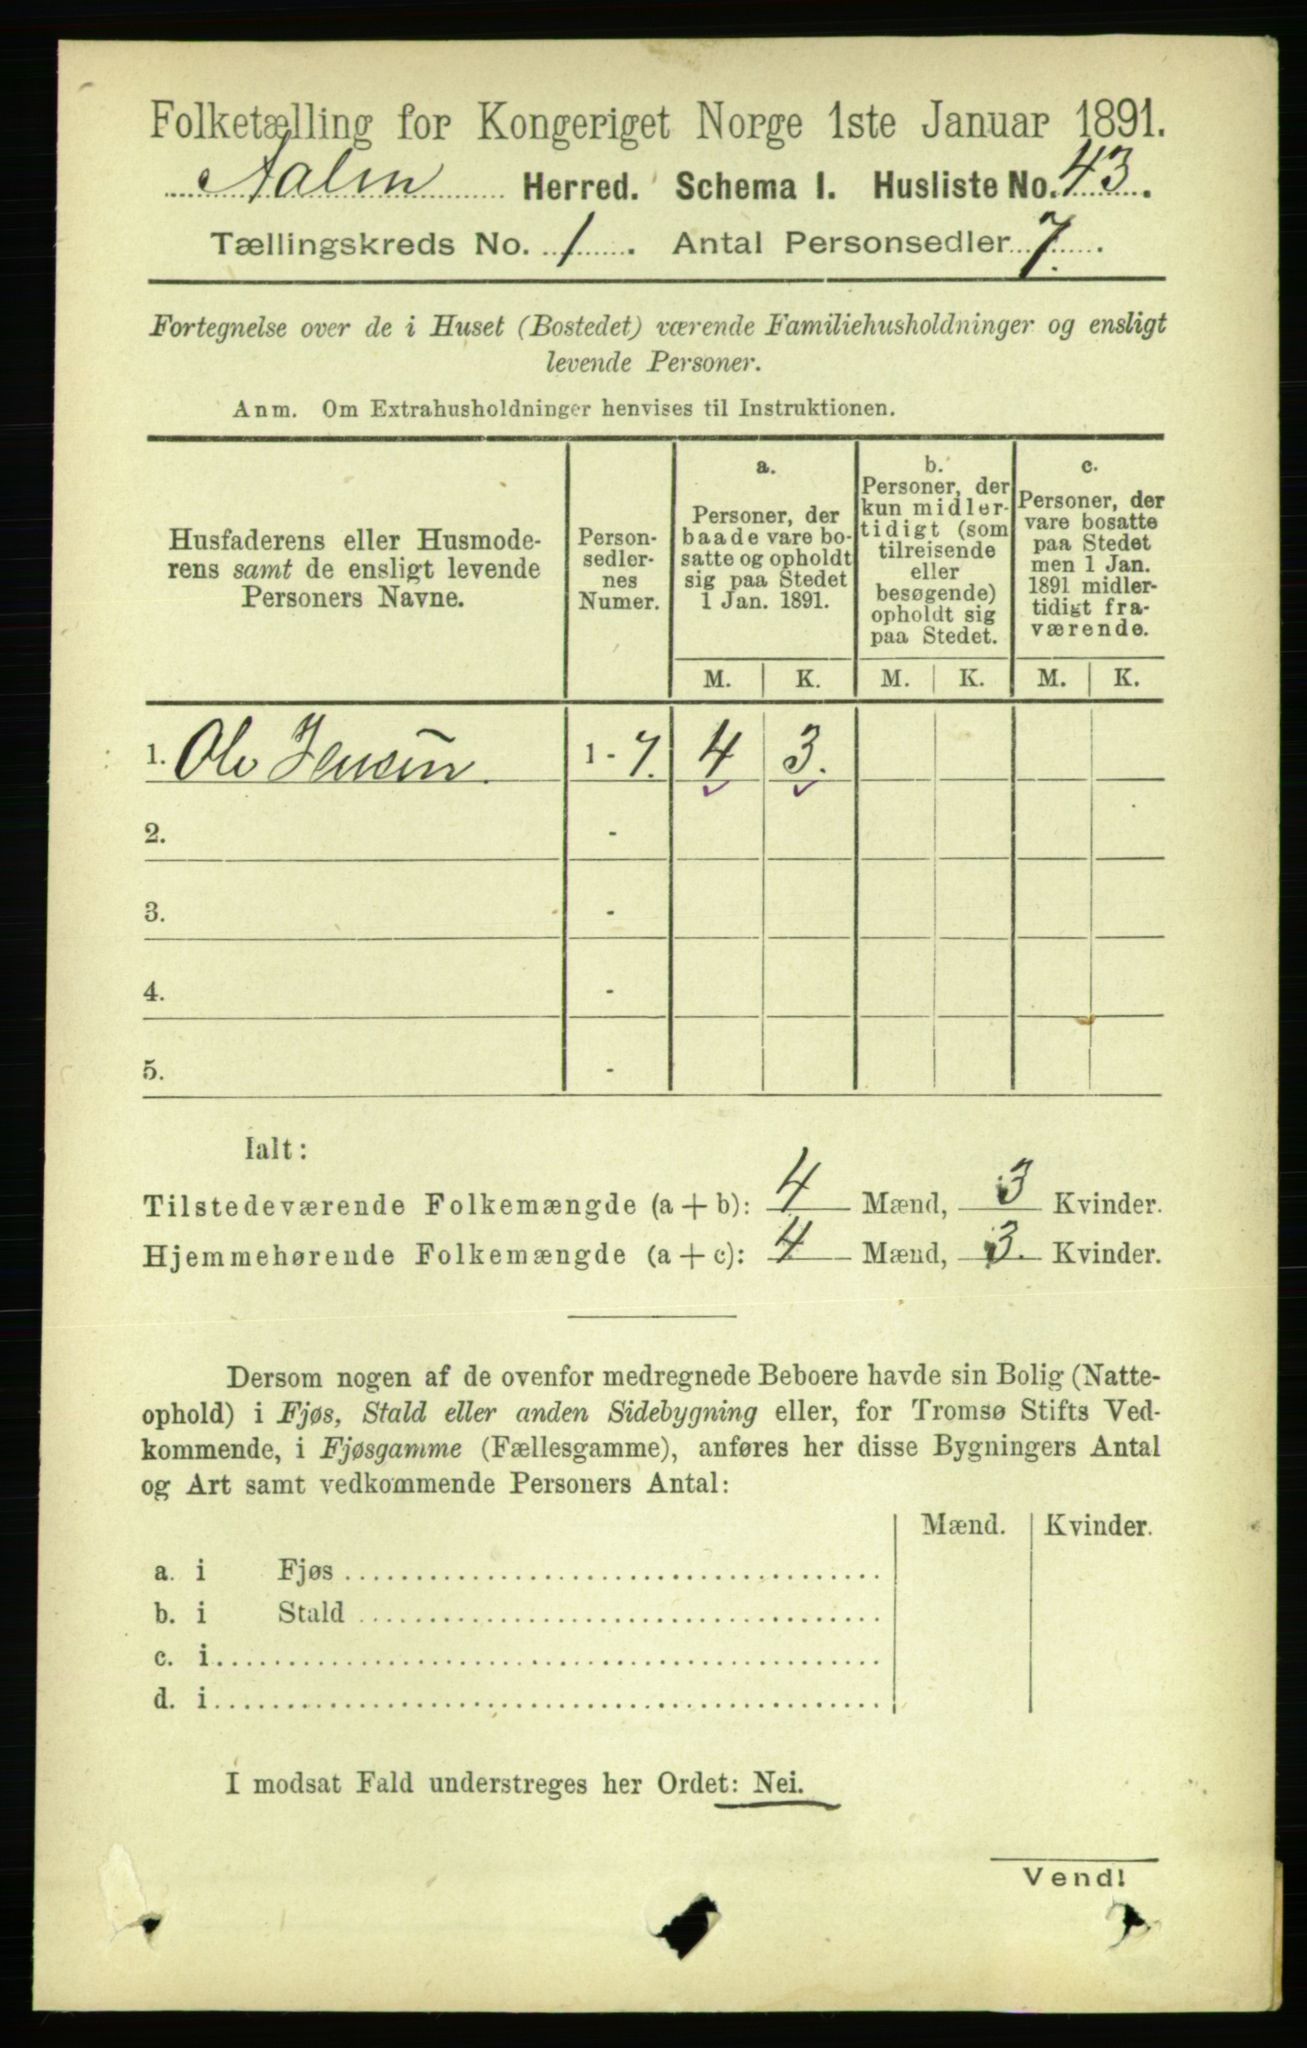 Folketælling for Kongeriget Norge 1ste Januar 1891.
Aalen Herred. Schema I. Husliste No. 43.
Tællingskreds No. 1. Antal Personsedler 7.
Fortegnelse over de i Huset (Bostedet) værende Familiehusholdninger og ensligt
levende Personer.
Anm. Om Extrahusholdninger henvises til Instruktionen.
Husfaderens eller Husmode-
rens samt de ensligt levende
Personers Navne.
Person-
sedler-
nes
Numer.
a.
Personer, der
baade vare bo-
satte og opholdt
sig paa Stedet
1 Jan. 1891.
b.
Personer, der
kun midler-
tidigt (som
tilreisende
eller
besøgende)
opholdt sig
paa Stedet.
c.
Personer, der
vare bosatte
paa Stedet
men 1 Jan.
1891 midler-
tidigt fra-
værende.
M. K. M. K. M. K.
1. Ole Jensen. 1 - 7. 4 3.
2. -
3. -
4. -
5. -
Ialt:
Tilstedeværende Folkemængde (a + b): 4 Mænd, 3 Kvinder.
Hjemmehørende Folkemængde (a + c): 4 Mænd, 3. Kvinder.
Dersom nogen af de ovenfor medregnede Beboere havde sin Bolig (Natte-
ophold) i Fjøs, Stald eller anden Sidebygning eller, for Tromsø Stifts Ved-
kommende, i Fjøsgamme (Fællesgamme), anføres her disse Bygningers Antal
og Art samt vedkommende Personers Antal:
Mænd. Kvinder.
a. i Fjøs
b. i Stald
c. i
d. i
I modsat Fald understreges her Ordet: Nei.
Vend!